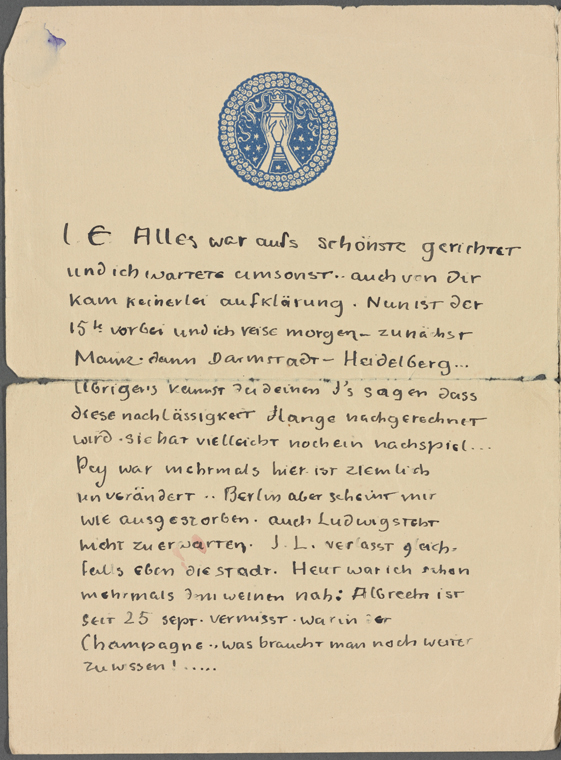 l. E Alles war aufs schönste gerichtet
und ich wartete umsonst.. auch von Dir
kam keinerlei aufklärung. Nun ist der
15te vorbei und ich reise morgen – zunächst
Mainz. dann Darmstadt – Heidelberg...
Übrigens kannst du deinen J's sagen dass
diese nachlässigkeit lange nachgerechnet
wird. sie hat vielleicht noch ein nachspiel...
Pey war mehrmals hier. ist ziemlich
unverändert .. Berlin aber scheint mir
wie ausgestorben. auch Ludwig steht
nicht zu erwarten. J. L. verlässt gleich-
falls eben die stadt. Heut war ich schon
mehrmals dem weinen nah: Albrecht ist
seit 25 sept. vermisst. war in der
Champagne.. was braucht man noch weiter
zu wissen! .....